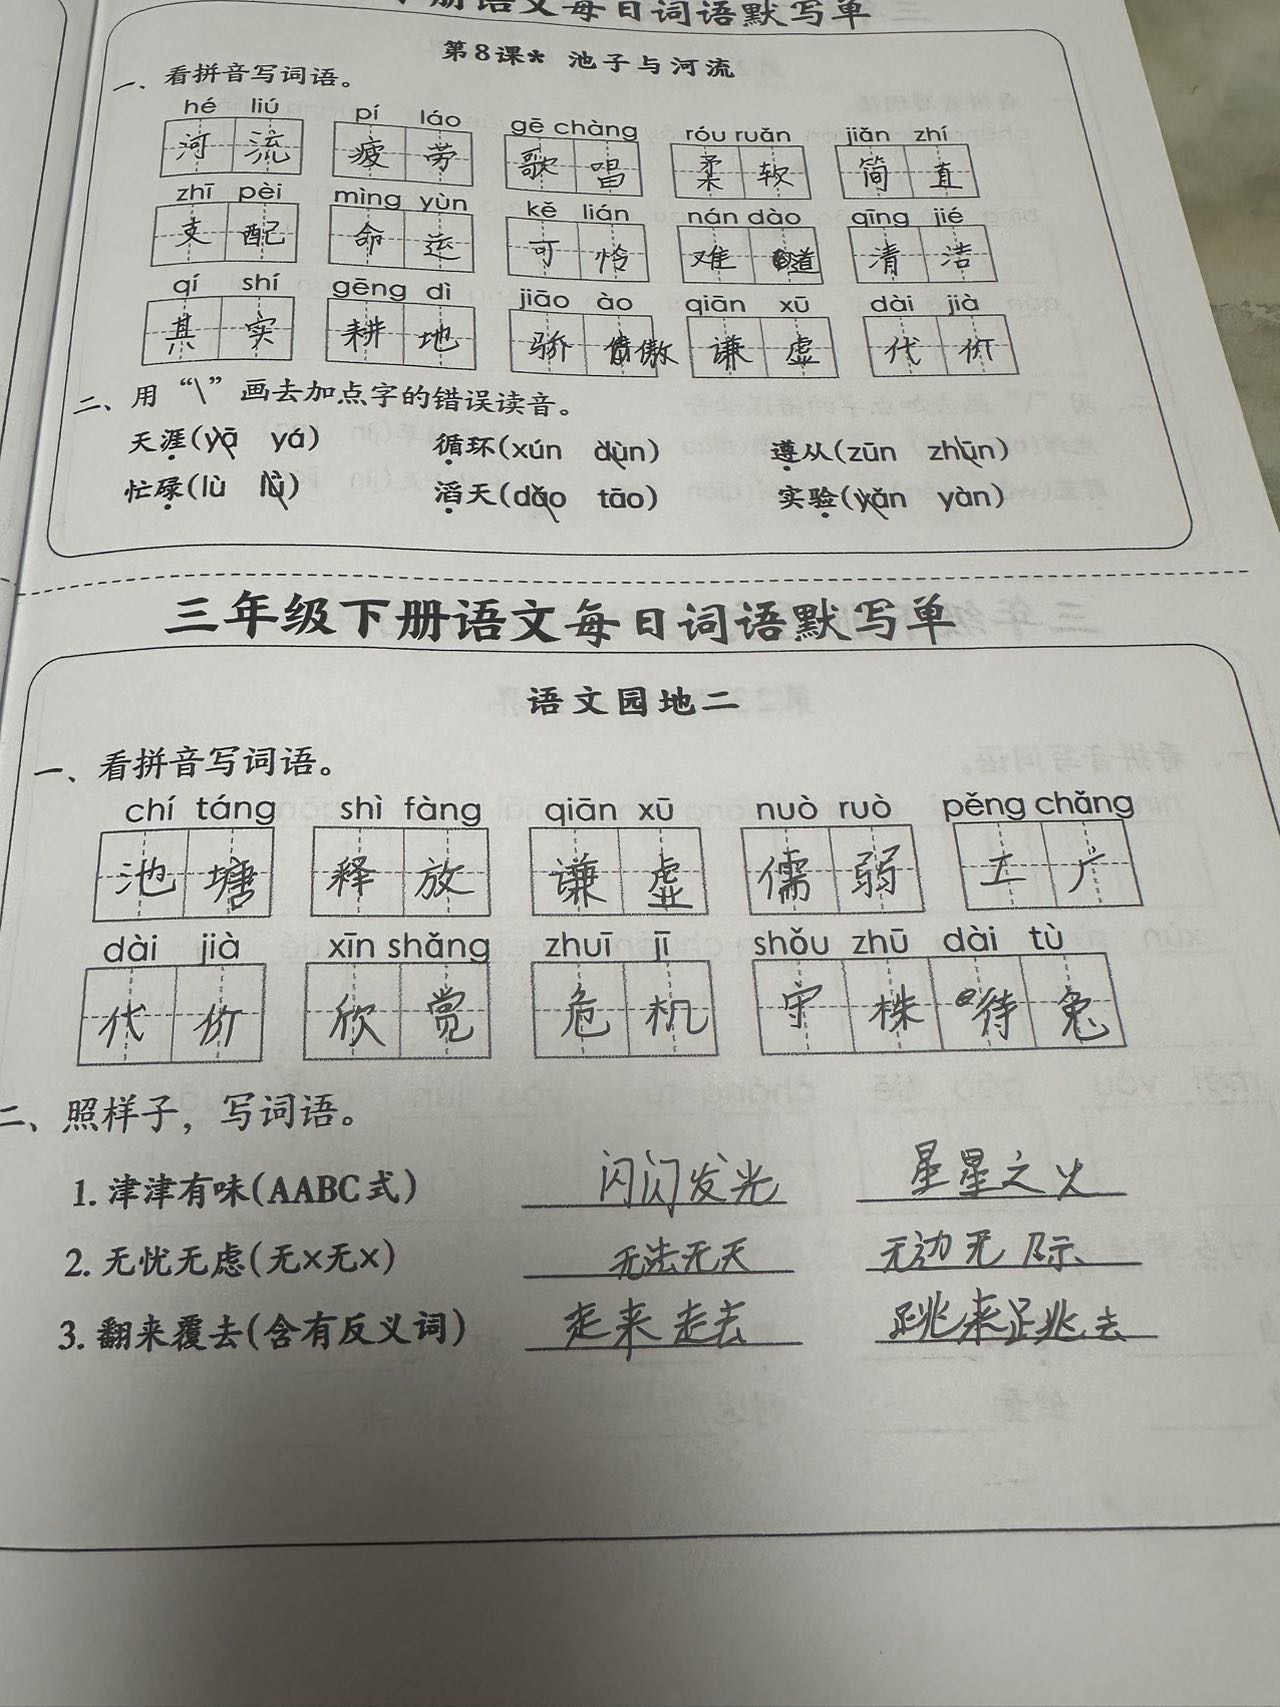 三年级下册语文每日词语默写单
第8课* 池子与河流
一、看拼音写词语。
hé liú pí láo gē chàng róu ruǎn jiǎn zhí
河流 疲劳 歌唱 柔软 简直
zhī pèi mìng yùn kě lián nán dào qīng jié
支配 命运 可怜 难道 清洁
qí shí gēng dì jiāo ào qiān xū dài jià
其实 耕地 骄傲 谦虚 代价
二、用“\”画去加点字的错误读音。
天涯(yā yá) 循环(xún dùn) 遵从(zūn zhūn)
忙碌(lù lǜ) 滔天(dǎo tāo) 实验(yǎn yàn)
三年级下册语文每日词语默写单
语文园地二
一、看拼音写词语。
chí táng shì fàng qiān xū nuò ruò pěng chǎng
池塘 释放 谦虚 儒弱 工厂
dài jià xīn shǎng zhuī jī shǒu zhū dài tù
代价 欣赏 危机 守株待兔
二、照样子，写词语。
1. 津津有味(AABC式) 闪闪发光 星星之火
2. 无忧无虑(无×无×) 无法无天 无边无际
3. 翻来覆去(含有反义词) 走来走去 跳来跳去